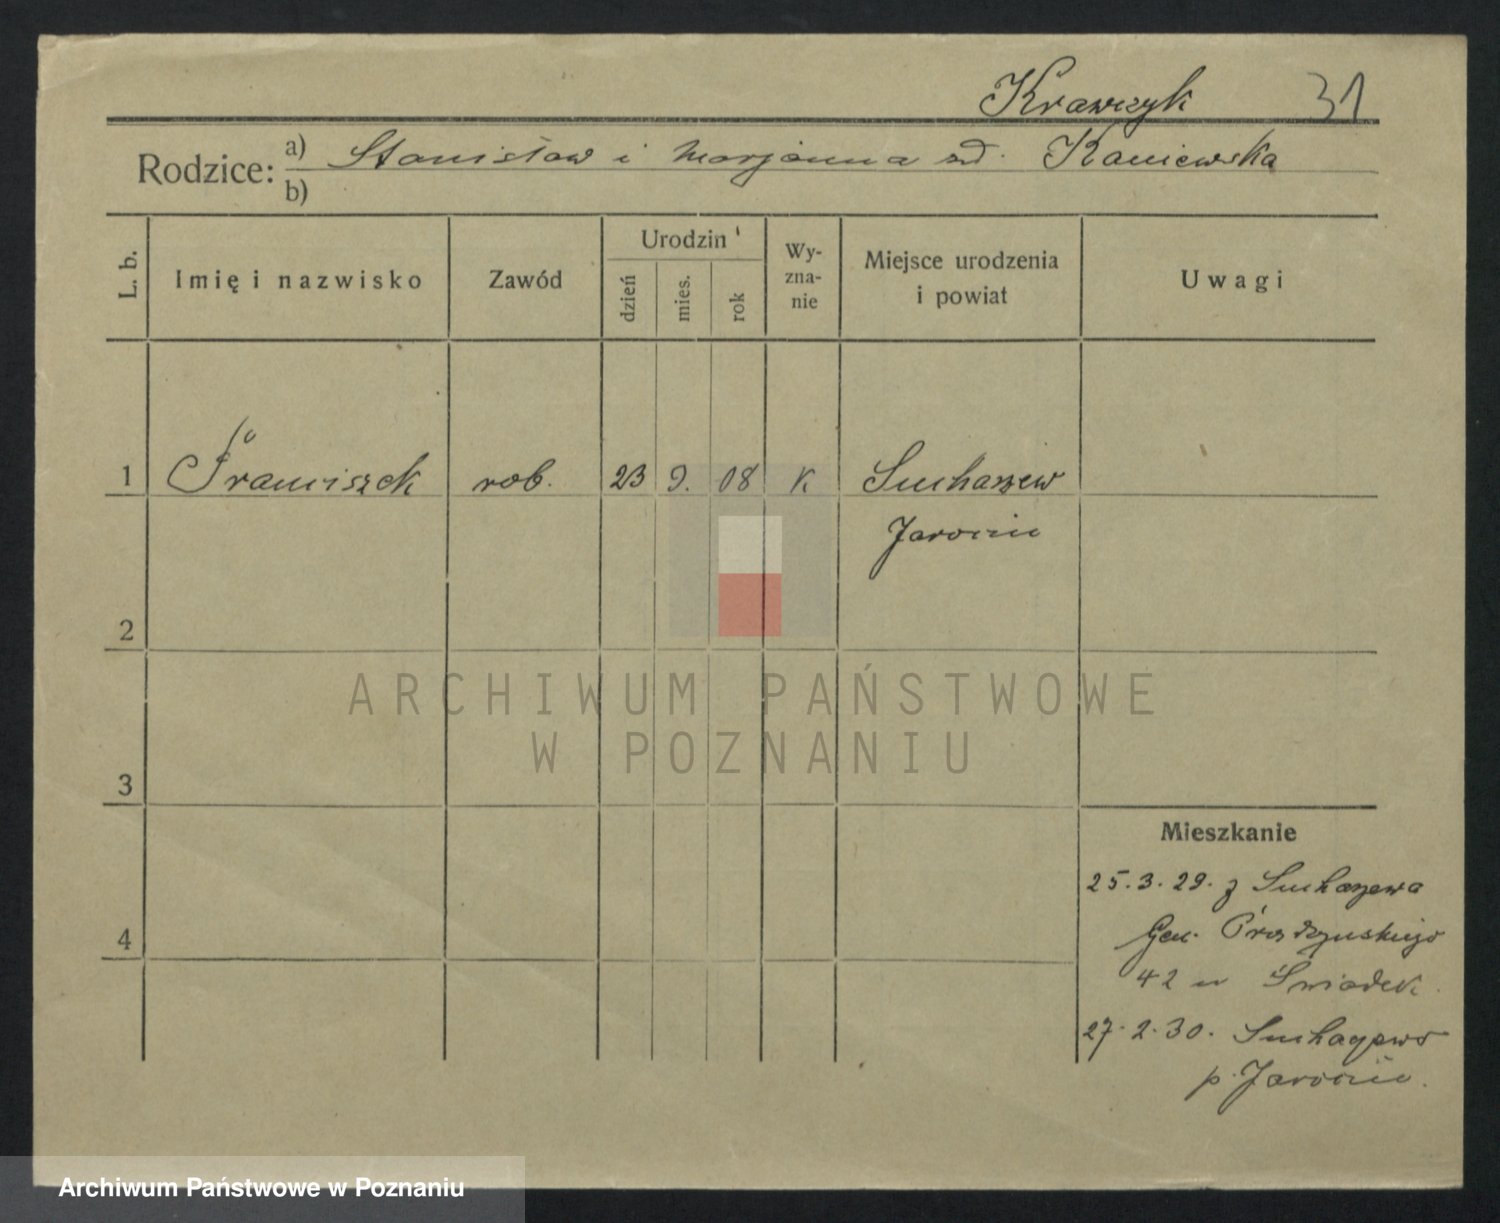 Krawczyk 31
Rodzice: a) Stanisław i Marjanna zd. Kaniewska
b)
L. b. Imię i nazwisko Zawód Urodzin Wy-zna-nie Miejsce urodzenia i powiat Uwagi
dzień mies. rok
1 Franciszek rob. 23 9. 08 K Suchorzew
Jarocin
2
ARCHIWUM PAŃSTWOWE
W POZNANIU
3
Mieszkanie
25.3.29. z Suchorzewa
4
Gen. Prądzyńskiego
42 u Świadek.
27.2.30. Suchorzewo
p. Jarocin.
Archiwum Państwowe w Poznaniu